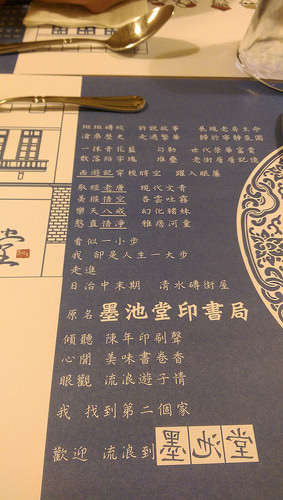 斑斑磚紋 訴說故事 展現老房生命
滄桑歷史 走過繁華 歸於寧靜氛圍
一抹青花藍 勾勒 世代榮華富貴
散落鉛字塊 堆疊 老街層層記憶
西遊記穿梭時空 躍入眼簾
取經老唐 現代文青
美猴悟空 吞雲吐霧
樂天八戒 幻化豬妹
憨直悟淨 雅痞河童
看似一小步
我 卻是人生一大步
走進
日治中末期 清水磚街屋
原名 墨池堂印書局
傾聽 陳年印刷聲
心聞 美味書卷香
眼觀 流浪遊子情
我 找到第二個家
歡迎 流浪到 墨池堂
堂